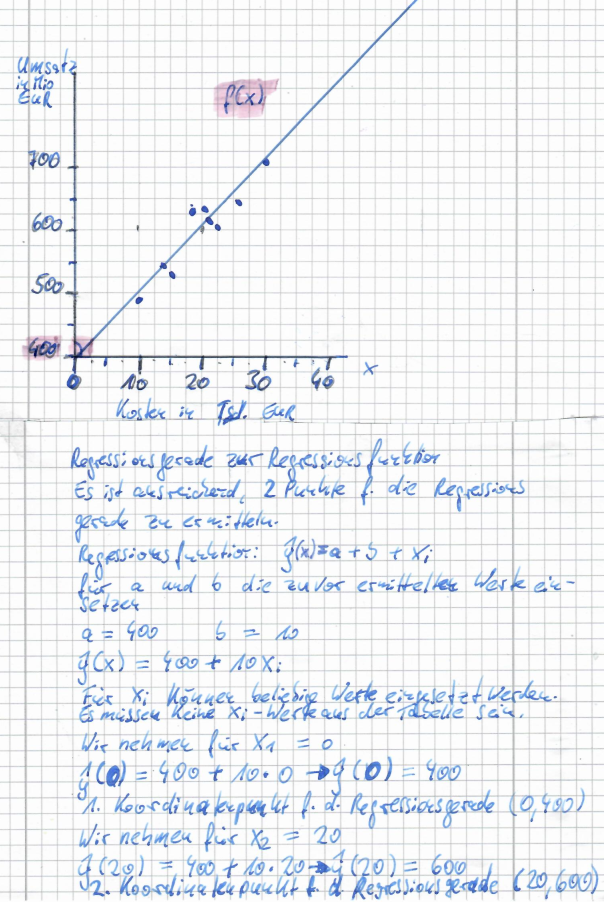 Umsatz
in Mio
EUR
f(x)
700
600
500
400
0 10 20 30 40 x
Kosten in Tsd. EUR
Regressionsgerade zur Regressionsfunktion
Es ist ausreichend, 2 Punkte f. die Regressions
gerade zu ermitteln.
Regressionsfunktion: ŷ(x) = a + b + xi
für a und b die zuvor ermittelten Werte ein-
setzen
a = 400 b = 10
ŷ(x) = 400 + 10xi
Für xi können beliebige Werte eingesetzt werden.
Es müssen keine xi-Werte aus der Tabelle sein.
Wir nehmen für x1 = 0
ŷ(0) = 400 + 10·0 → ŷ(0) = 400
1. Koordinatenpunkt f. d. Regressionsgerade (0,400)
Wir nehmen für x2 = 20
ŷ(20) = 400 + 10·20 → ŷ(20) = 600
2. Koordinatenpunkt f. d. Regressionsgerade (20,600)